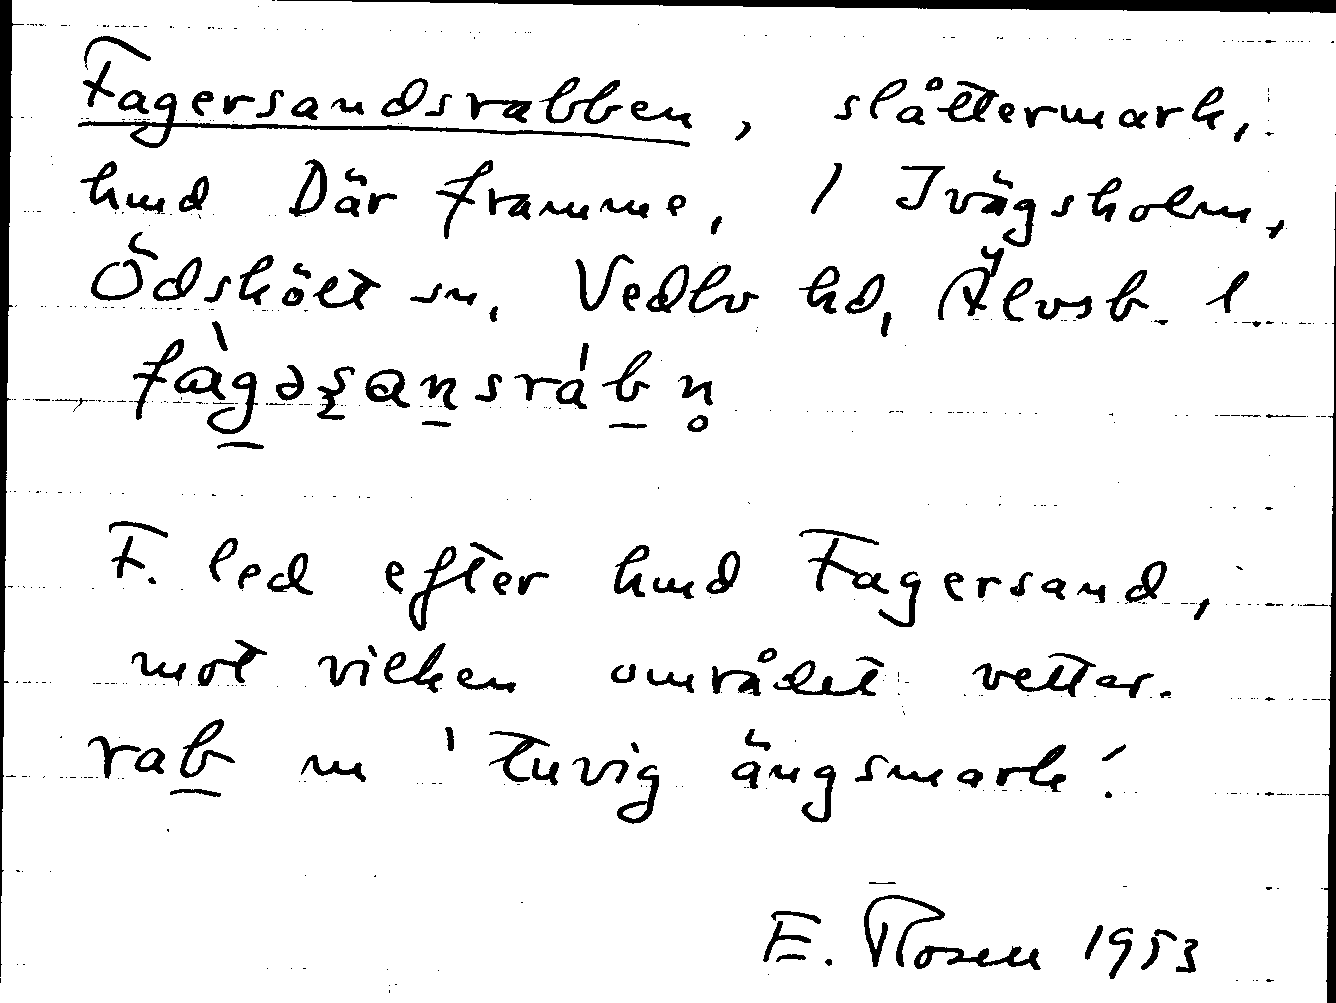 Fagersandsrabben, slåttermark,
hmd Där framme, 1 Ivägsholm,
Ödskölt sn, Vedbo hd, Älvsb. l
fàgəʂan̠sráb̠n̥
F. led efter hmd Fagersand,
mot vilken området vetter.
rab̠ m 'tuvig ängsmark'.
E. Rosen 1953